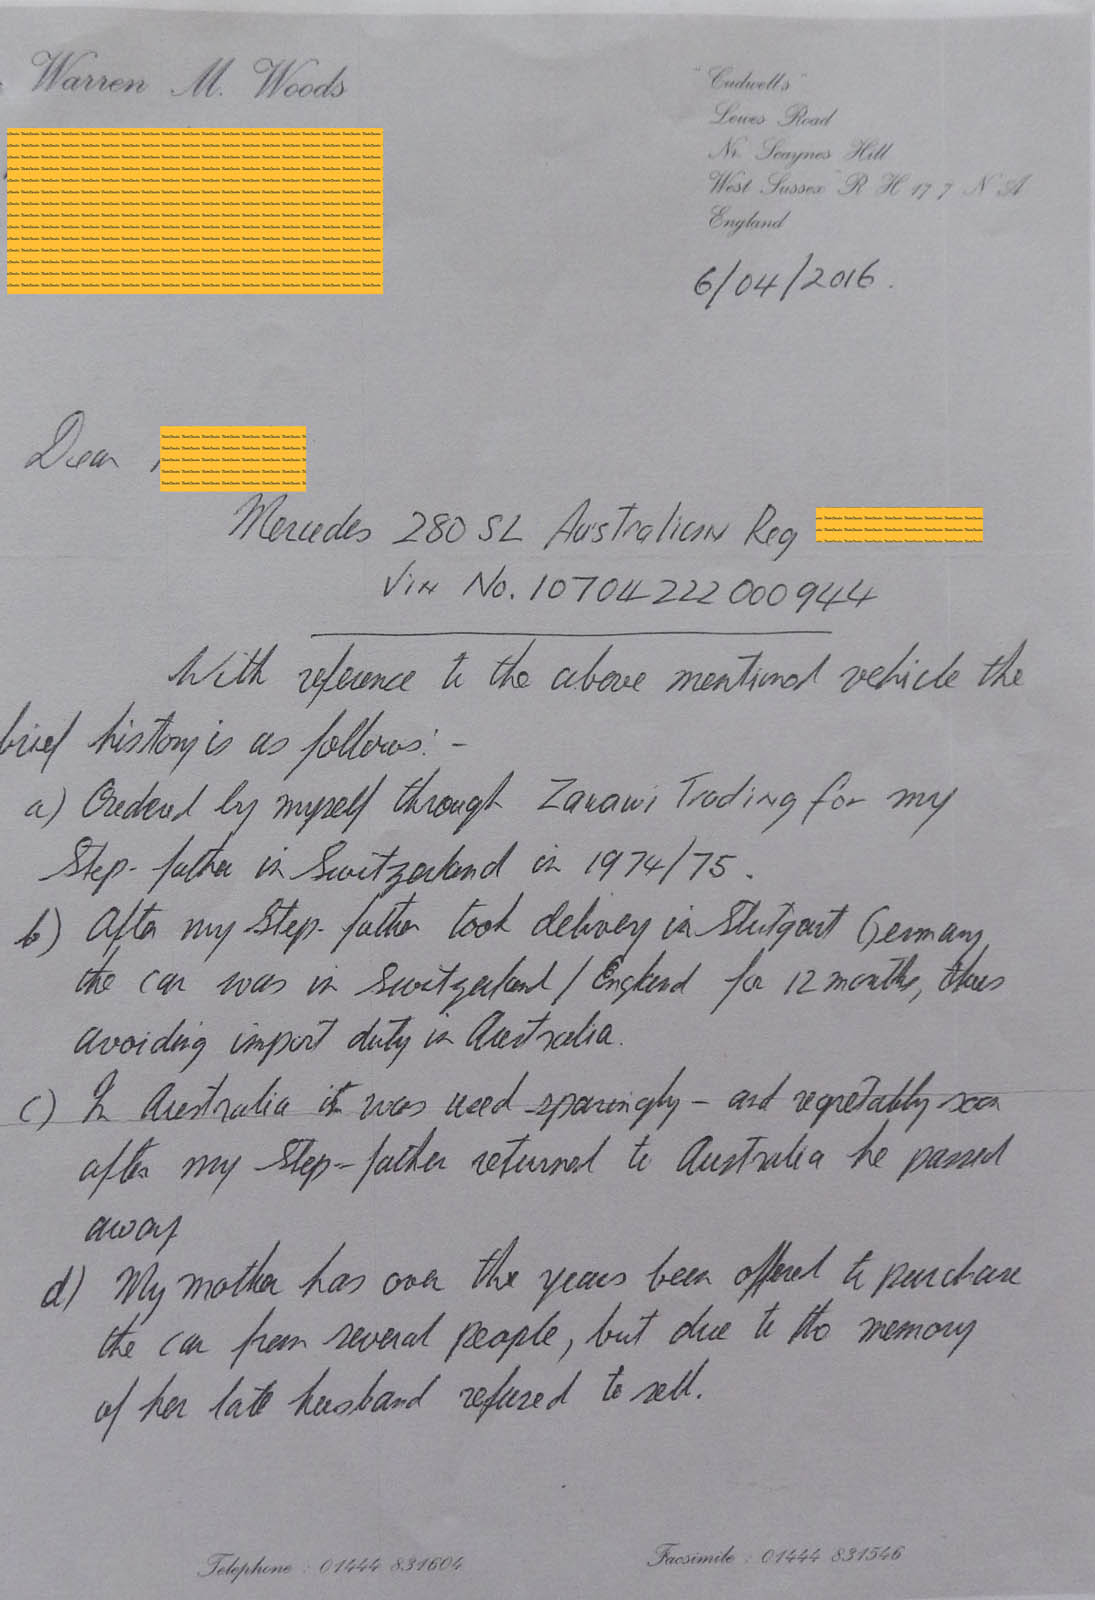 Warren M. Woods
"Cudwell's"
Lewes Road
Nr. Scaynes Hill
West Sussex R H 17 7 N A
England
6/04/2016.
Dear
Mercedes 280 SL Australian Reg
Vin No. 10704222000944
With reference to the above mentioned vehicle the
brief history is as follows: -
a) Ordered by myself through Zarawi Trading for my
Step-father in Switzerland in 1974/75.
b) After my Step-father took delivery in Stutgart Germany,
the car was in Switzerland / England for 12 months, thus
avoiding import duty in Australia.
c) In Australia it was used sparingly - and regretably soon
after my Step-father returned to Australia he passed
away
d) My mother has over the years been offered to purchase
the car from several people, but due to the memory
of her late husband refused to sell.
Telephone : 01444 831604
Facsimile : 01444 831546